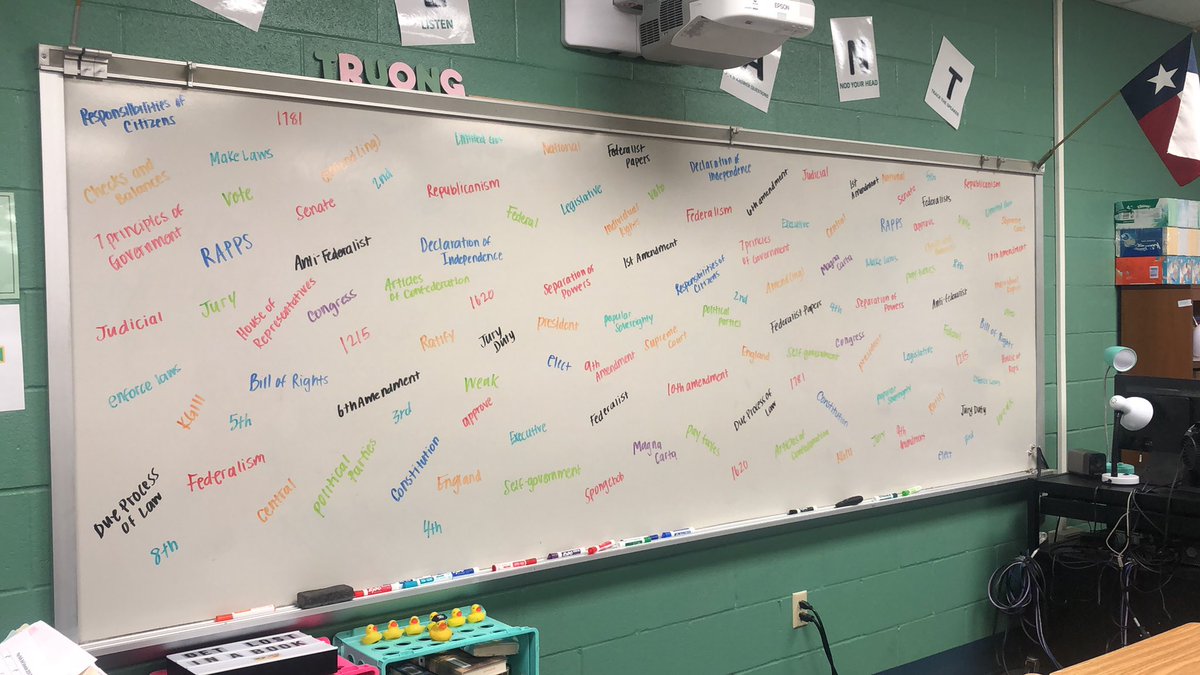 LISTEN
EPSON
N
NOD YOUR HEAD
T
TRACK THE SPEAKER
TRUONG
Responsibilities of
Citizens
1781
Checks and
Balances
Make Laws
2nd
Limited Gov
National
Federalist
Papers
Declaration of
Independence
6th amendment
Judicial
1st
Amendment
National
Senate
Republicanism
7 principles of
Government
Vote
Senate
Republicanism
Federal
Legislative
vote
Individual
Rights
Federalism
Executive
Central
RAPPS
approve
Federalists
RAPPS
Anti-Federalist
Declaration of
Independence
1st Amendment
7 princies of
Government
Magna
Carta
Make Laws
10th amendment
Jury
House of
Representatives
Congress
Articles
of Confederation
1620
Separation of
Powers
Responsibilities of
Citizens
2nd
8th
Anti-federalist
Judicial
1215
Ratify
Jury
Duty
president
popular
Sovereignty
Supreme
Court
political
parties
Federalist Papers
4th
Separation of
Powers
Congress
president
Bill of Rights
enforce laws
Bill of Rights
6th Amendment
weak
elect
9th
Amendment
10th amendment
England
Self-government
Legislative
1215
House of
Reps
KGIII
5th
3rd
approve
Executive
Federalist
Due Process of
Law
1781
Constitution
popular
Sovereignty
Jury Duty
Due Process
of Law
Federalism
central
political
parties
Constitution
England
Self-government
Spongbob
Magna
Carta
pay taxes
1620
Articles of
Confederation
KGIII
Jury
9th
Amendment
elect
8th
4th
GET LOST
IN A BOOK